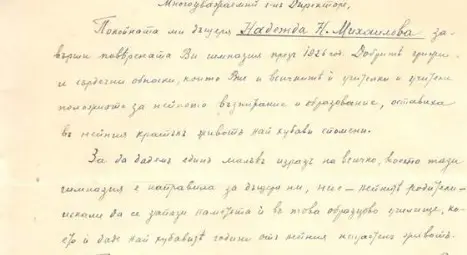 Многоуважаемий г-нъ Директоре,
Покойната ми дъщеря Надежда Н. Михаилова за-
върши повѣрената Ви гимназия презъ 1926 год. Добритѣ грижи
и сърдечни обноски, които Вие и всичкитѣ ѝ учителки и учители
положихте за нейното възпитание и образование, оставиха
въ нейния кратъкъ животъ най хубави спомени.
За да дадемъ единъ малъкъ изразъ на всичко, което тази
гимназия е направила за дъщеря ни, ние – нейнитѣ родители –
искаме да се запази паметьта ѝ въ това образцово училище, ко-
ето ѝ даде най хубавитѣ години отъ нейния нещастенъ животъ.